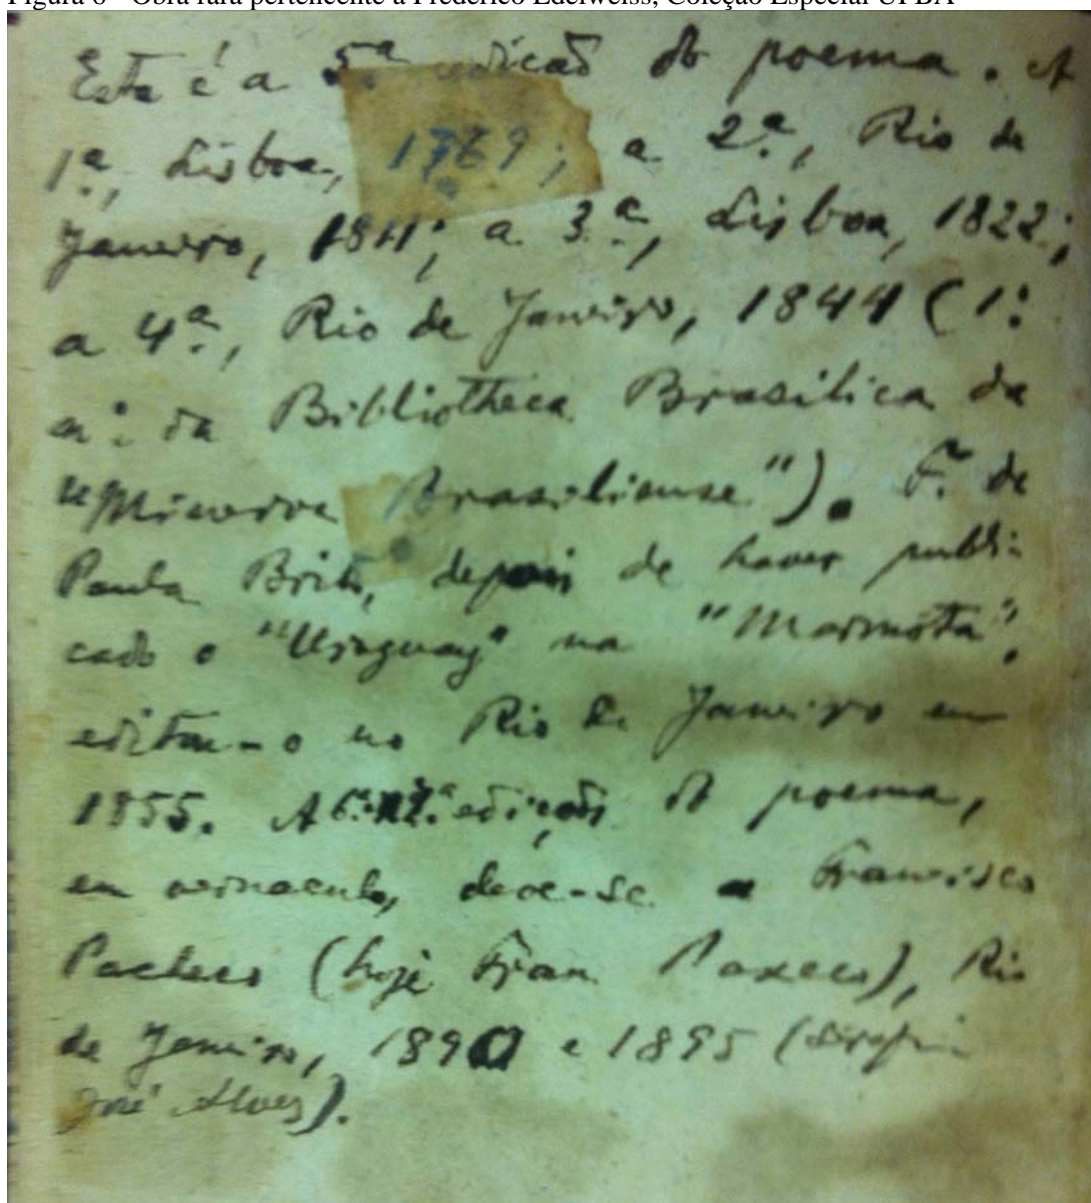 Figura 6 - Obra rara pertencente a Frederico Edelweiss, Coleção Especial UFBA
Esta é a 5.ª edição do poema. A
1.ª, Lisboa, 1769; a 2.ª, Rio de
Janeiro, 1811; a 3.ª, Lisboa, 1822;
a 4.ª, Rio de Janeiro, 1844 (1.º
n.º da Bibliotheca Brasilica da
"Minerva Brasiliense"). F. de
Paula Brito, depois de haver publi-
cado o "Uruguay" na "Marmota",
editou-o no Rio de Janeiro em
1855. A 6.ª edição do poema,
em vernaculo, deve-se a Francisco
Pacheco (hoje Fran Paxeco), Rio
de Janeiro, 1890 e 1895 (Serafim
José Alves).